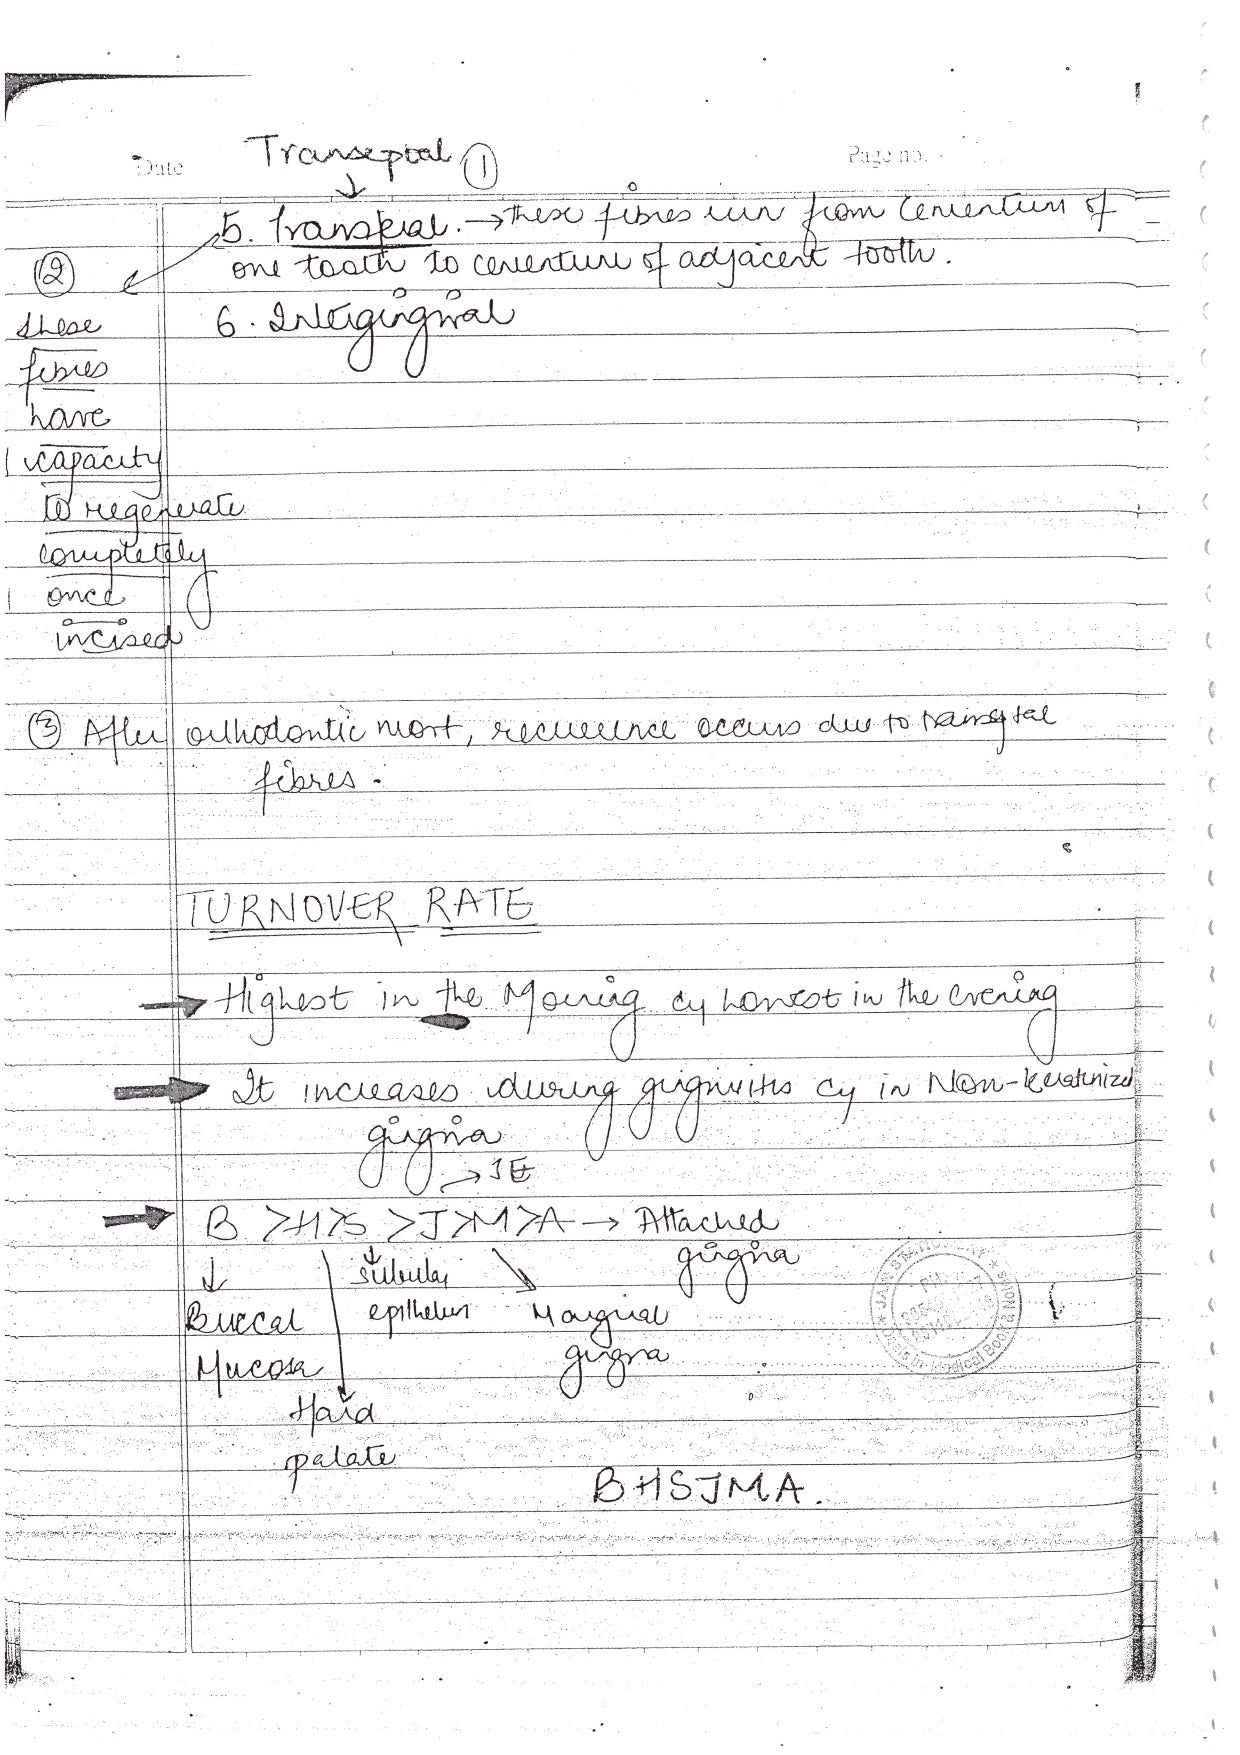 Date
Page no.
Transeptal ①
↓
5. Transptal. → These fibres run from Cementum of
one tooth to cementum of adjacent tooth.
6. Intergingival
②
these
fibres
have
capacity
to regenerate
completely
once
incised
③ After orthodontic
recurrence occurs due to
fibres.
TURNOVER RATE
→ Highest in the Morning
lowest in the evening
→ It increases during gingivitis
in Non-keratinized
gingiva
→ JE
→ B >H>S >J>M>A → Attached
gingiva
↓
Buccal
Mucosa
Hard
palate
↓
sulcular
epithelium
Marginal
gingiva
BHSJMA.